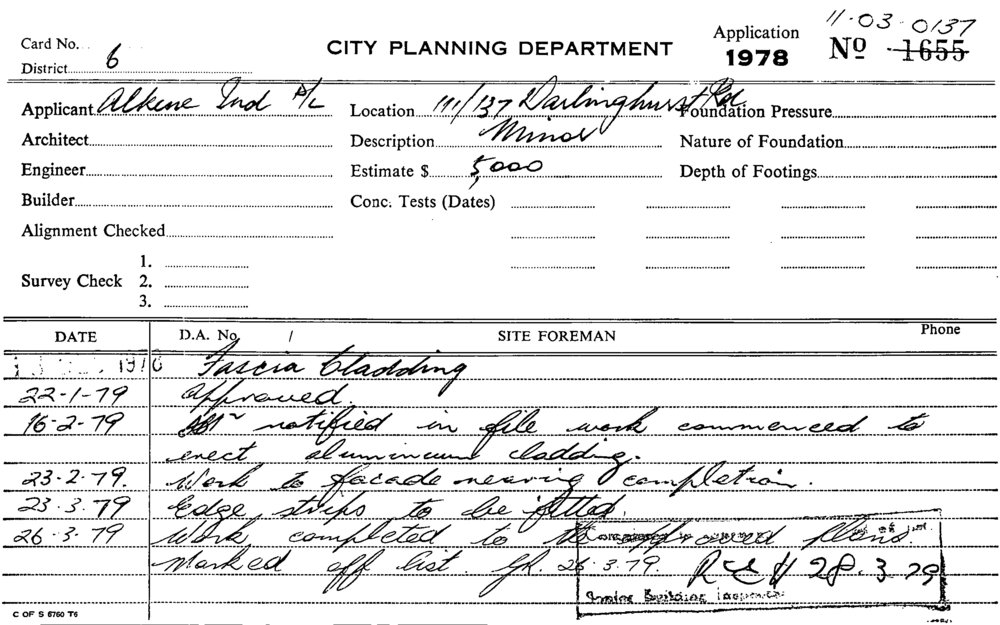 11-03-0137
Card No. CITY PLANNING DEPARTMENT Application
District 6 1978 No 1655
Applicant Alkene Ind P/L Location 111/137 Darlinghurst Rd Foundation Pressure
Architect Description Minor Nature of Foundation
Engineer Estimate $ 5,000 Depth of Footings
Builder Conc. Tests (Dates)
Alignment Checked
1.
Survey Check 2.
3.
DATE D.A. No. / SITE FOREMAN Phone
Fascia Cladding
22-1-79 Approved.
16-2-79 notified in file work commenced to
erect aluminium cladding.
23-2-79. Work to facade nearing completion.
23.3.79 Edge strips to be fitted.
26.3.79 Work completed to the approved plans.
Marked off list. 26.3.79. 28.3.79
Building Inspector
C OF S 6760 T6